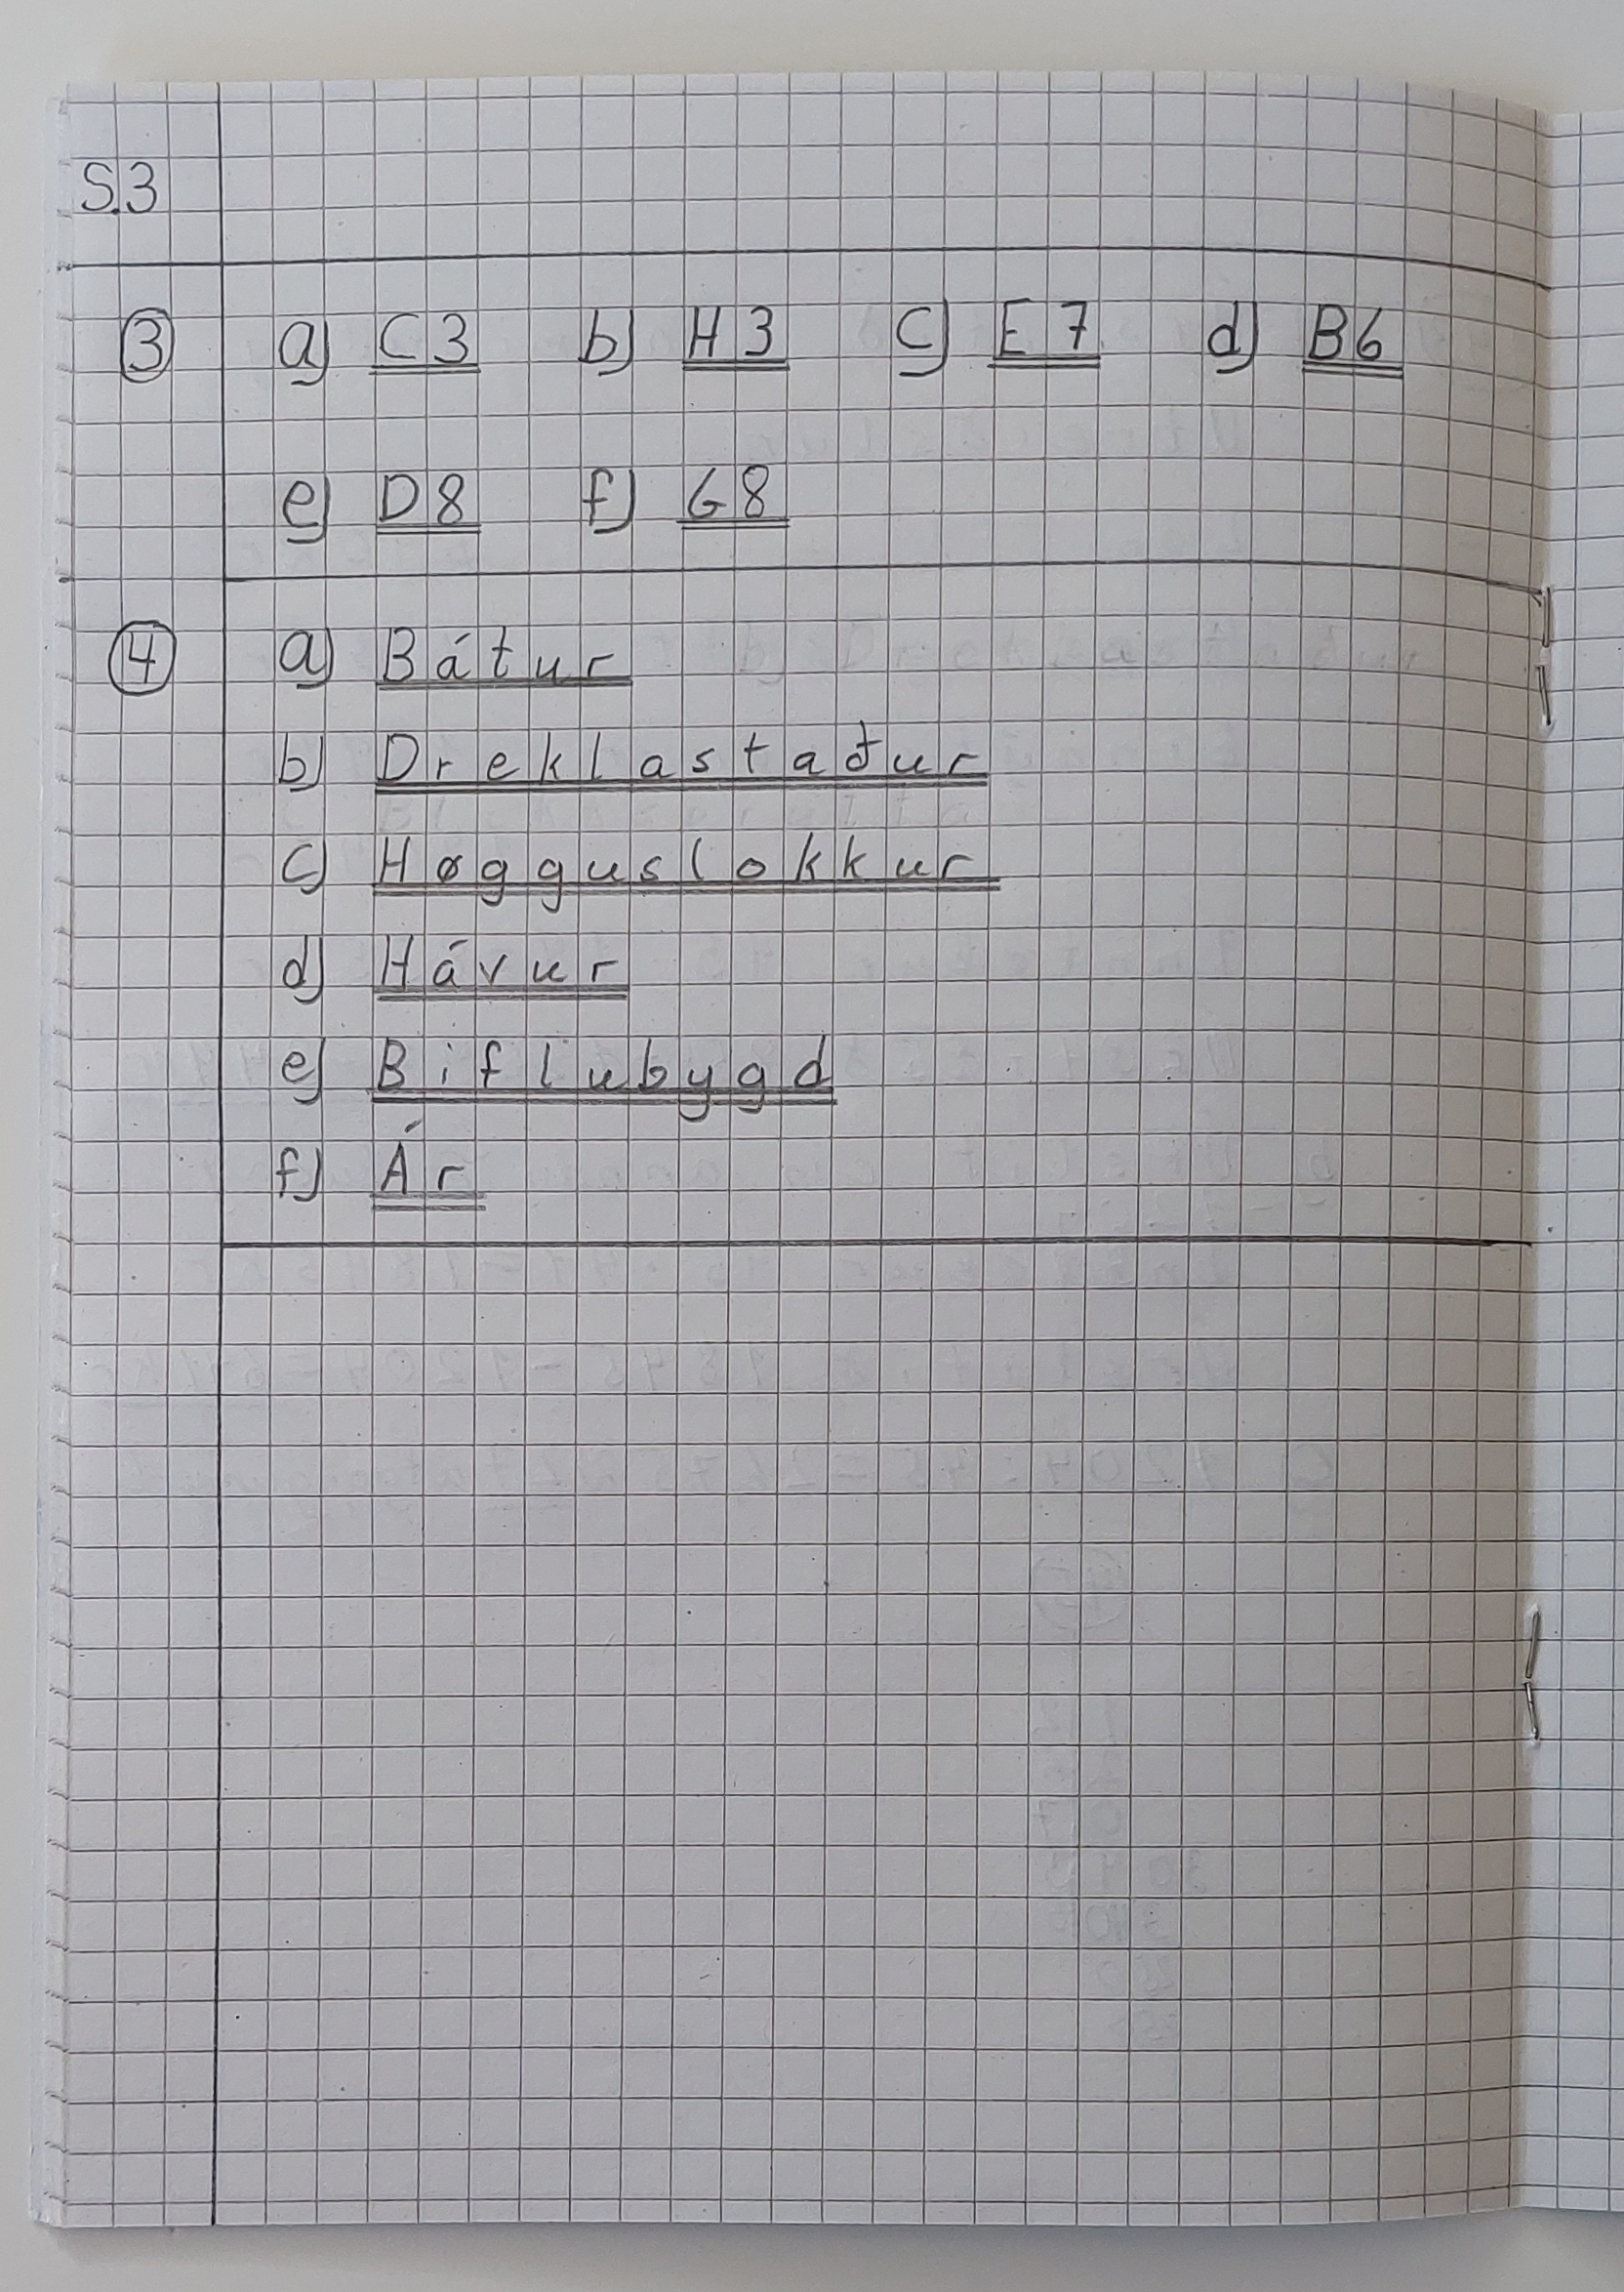 S.3
③ a) C3 b) H3 c) E7 d) B6
e) D8 f) G8
④ a) Bátur
b) Dreklastaður
c) Høgguslokkur
d) Hávur
e) Biflubygd
f) Ár